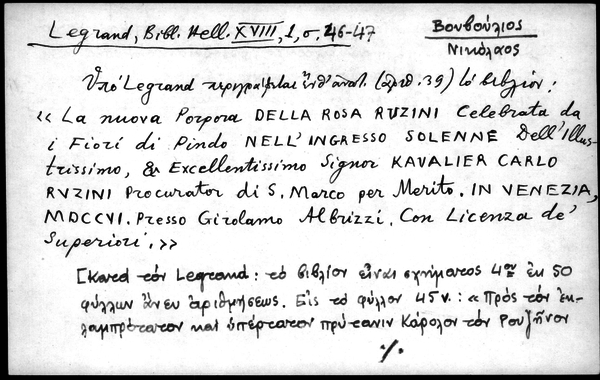 Legrand, Bibl. Hell. XVIII, 1, σ. 46-47
Βουβούλιος
Νικόλαος
Ὑπό Legrand περιγράφεται ἐνθ' ἀνωτ. (ἀριθ. 39) τό βιβλίον:
« La nuova Porpora DELLA ROSA RVZINI Celebrata da
i Fiori di Pindo NELL' INGRESSO SOLENNE Dell' Illus-
trissimo, & Excellentissimo Signor KAVALIER CARLO
RVZINI Procurator di S. Marco per Merito. IN VENEZIA,
MDCCVI. Presso Girolamo Albrizzi. Con Licenza de'
Superiori. »
[Κατά τόν Legrand: τό βιβλίον εἶναι σχήματος 4ου ἐκ 50
φύλλων ἄνευ ἀριθμήσεως. Εἰς τό φύλλον 45 v.: «Πρός τόν ἐκ-
λαμπρότατον καί ὑπέρτατον πρύτανιν Κάρολον τόν Ρουζῆνον
·/.